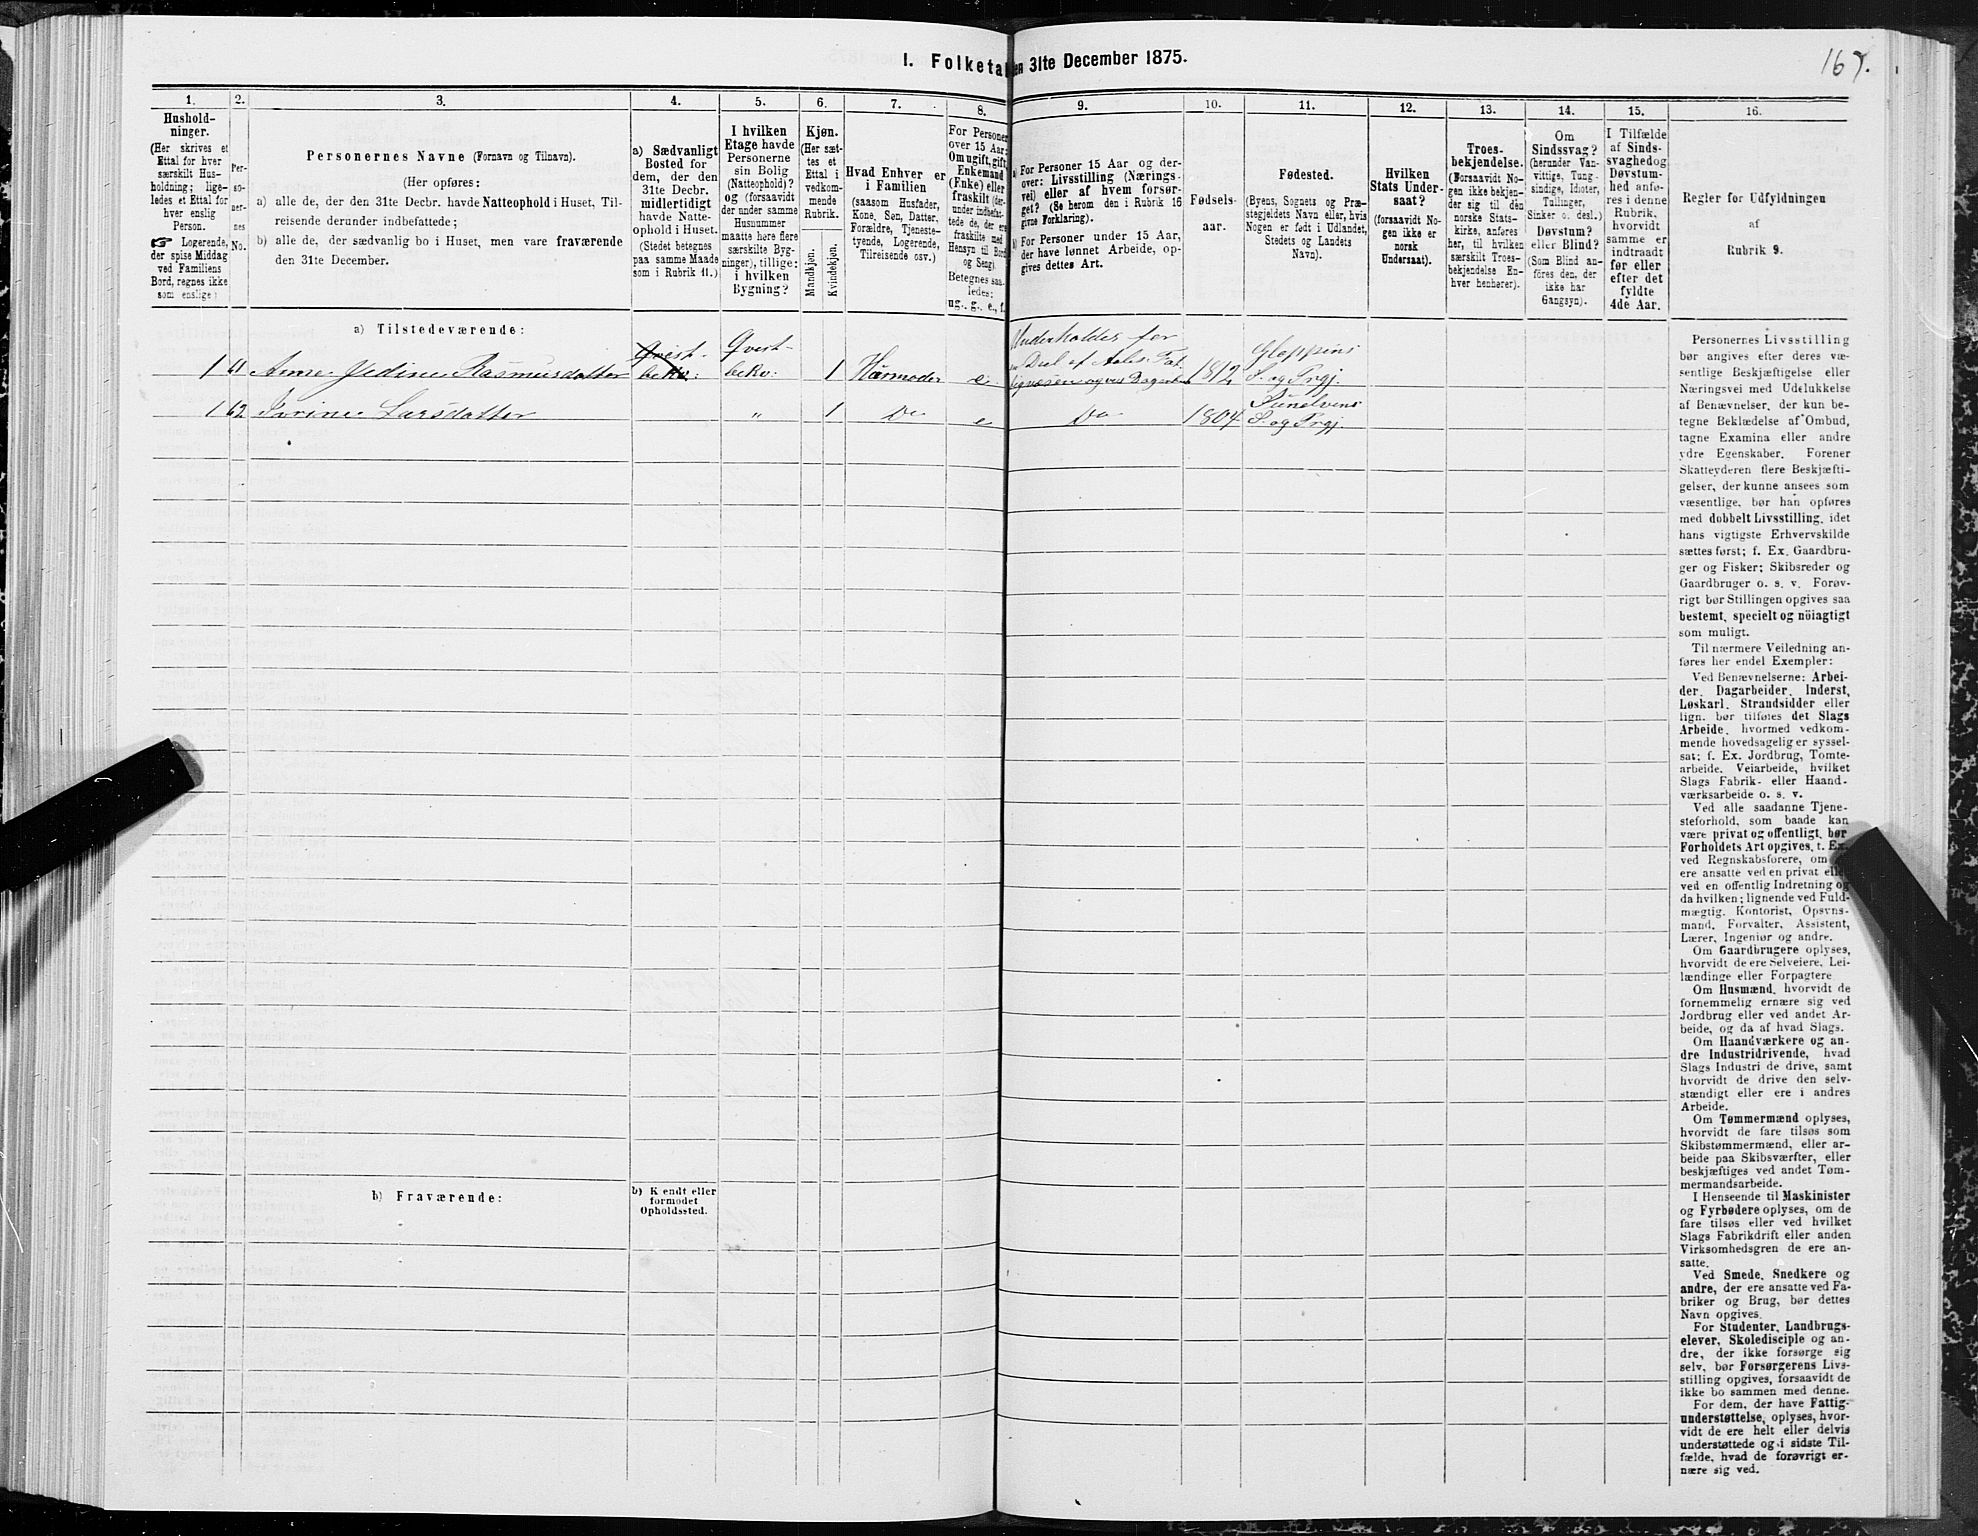 I. Folketa
en 31te December 1875.
167.
1.
Hushold-
ninger.
(Her skrives et
Ettal for hver
særskilt Hus-
holdning; lige-
ledes et Ettal for
hver enslig
Person.
☞ Logerende,
der spise Middag
ved Familiens
Bord, regnes ikke
som enslige)
2.
Per-
so-
ner-
nes
No.
3.
Personernes Navne (Fornavn og Tilnavn).
(Her opføres:
a) alle de, der den 31te Decbr. havde Natteophold i Huset, Til-
reisende derunder indbefattede;
b) alle de, der sædvanlig bo i Huset, men vare fraværende
den 31te December.
4.
a) Sædvanligt
Bosted for
dem, der den
31te Decbr.
midlertidigt
havde Natte-
ophold i Huset.
(Stedet betegnes
paa samme Maade
som i Rubrik 11.)
5.
I hvilken
Etage havde
Personerne
sin Bolig
(Natteophold)?
og (forsaavidt
der under samme
Husnummer
maatte høre flere
særskilte Byg-
ninger), tillige:
i hvilken
Bygning?
6.
Kjøn.
(Her sæt-
tes et
Ettal i
vedkom-
mende
Rubrik.
Mandkjøn.
Kvindekjøn.
7.
Hvad Enhver er
i Familien
(saasom Husfader,
Kone, Søn, Datter,
Forældre, Tjeneste-
tyende, Logerende,
Tilreisende osv.)
8.
For Personer
over 15 Aar:
Om ugift, gift,
Enkemand
(Enke) eller
fraskilt (der-
under indbefat-
tede de, der ere
fraskilte med
Hensyn til Bord
og Seng).
Betegnes saa-
ledes:
ug., g., e., f.
9.
a) For Personer 15 Aar og der-
over: Livsstilling (Nærings-
vei) eller af hvem forsør-
get? (Se herom den i Rubrik 16
givne Forklaring).
b) For Personer under 15 Aar,
der have lønnet Arbeide, op-
gives dettes Art.
10.
Fødsels-
aar.
11.
Fødested.
(Byens, Sognets og Præ-
stegjeldets Navn eller, hvis
Nogen er født i Udlandet,
Stedets og Landets
Navn).
12.
Hvilken
Stats Under-
saat?
(forsaavidt No-
gen ikke er
norsk
Undersaat).
13.
Troes-
bekjendelse.
(Forsaavidt No-
gen ikke bekjen-
der sig til den
norske Stats-
kirke, anføres
her, til hvilken
særskilt Troes-
bekjendelse En-
hver henhører).
14.
Om
Sindssvag?
(herunder Van-
vittige, Tung-
sindige, Idioter,
Tullinger,
Sinker o. desl.)
Døvstum?
eller Blind?
(Som Blind an-
føres den, der
ikke har
Gangsyn).
15.
I Tilfælde
af Sinds-
svaghed og
Døvstum-
hed anfø-
res i denne
Rubrik,
hvorvidt
samme er
indtraadt
før eller
efter det
fyldte
4de Aar.
16.
Regler for Udfyldningen
af
Rubrik 9.
a) Tilstedeværende:
1 61 Anne Jedine Rasmusdatter Qvist- bekv: Qvist- bekv: 1 Husmoder e Underholdes for en Deel af Aales. Fat- tigvæsen 1812 Gloppens S. og Prgj.
1 62 Ivrine Larsdatter " 1 Do e Do 1804 Sunelvens S. og Prgj.
b) Fraværende:
b) Kjendt eller
formodet
Opholdssted.
Personernes Livsstilling
bør angives efter deres væ-
sentlige Beskjæftigelse eller
Næringsvei med Udelukkelse
af Benævnelser, der kun be-
tegne Beklædelse af Ombud,
tagne Examina eller andre
ydre Egenskaber. Forener
Skatteyderen flere Beskjæfti-
gelser, der kunne ansees som
væsentlige, bør han opføres
med dobbelt Livsstilling, idet
hans vigtigste Erhvervskilde
sættes først; f. Ex. Gaardbru-
ger og Fisker; Skibsreder og
Gaardbruger o. s. v. Forøv-
rigt bør Stillingen opgives saa
bestemt, specielt og nöiagtigt
som muligt.
Til nærmere Veiledning an-
føres her endel Exempler:
Ved Benævnelserne: Arbei-
der, Dagarbeider, Inderst,
Løskarl, Strandsidder eller
lign. bør tilføies det Slags
Arbeide, hvormed vedkom-
mende hovedsagelig er syssel-
sat; f. Ex. Jordbrug, Tomte-
arbeide, Veiarbeide, hvilket
Slags Fabrik- eller Haand-
værksarbeide o. s. v.
Ved alle saadanne Tjene-
steforhold, som baade kan
være privat og offentligt, bør
Forholdets Art opgives, f. Ex.
ved Regnskabsførere, om
ere ansatte ved en privat eller
ved en offentlig Indretning og
da hvilken; lignende ved Fuld-
mægtig, Kontorist, Opsyns-
mand, Forvalter, Assistent,
Lærer, Ingeniør og andre.
Om Gaardbrugere oplyses,
hvorvidt de ere Selveiere, Lei-
lændinge eller Forpagtere
Om Husmænd, hvorvidt de
fornemmelig ernære sig ved
Jordbrug eller ved andet Ar-
beide, og da af hvad Slags.
Om Haandværkere og an-
dre Industridrivende, hvad
Slags Industri de drive, samt
hvorvidt de drive den selv-
stændigt eller ere i andres
Arbeide.
Om Tømmermænd oplyses,
hvorvidt de fare tilsøs som
Skibstømmermænd, eller ar-
beide paa Skibsværfter, eller
beskjæftiges ved andet Tøm-
mermandsarbeide.
I Henseende til Maskinister
og Fyrbødere oplyses, om de
fare tilsøs eller ved hvilket
Slags Fabrikdrift eller anden
Virksomhedsgren de ere an-
satte.
Ved Smede, Snedkere og
andre, der ere ansatte ved Fa-
briker og Brug, bør dettes
Navn opgives.
For Studenter, Landbrugs-
elever, Skoledisciple og an-
dre, der ikke forsørge sig
selv, bør Forsørgerens Livs-
stilling opgives, forsaavidt de
ikke bo sammen med denne.
For dem, der have Fattig-
understøttelse, oplyses, hvor-
vidt de ere helt eller delvis
understøttede og i sidste Til-
fælde, hvad de forøvrigt er-
nære sig ved.